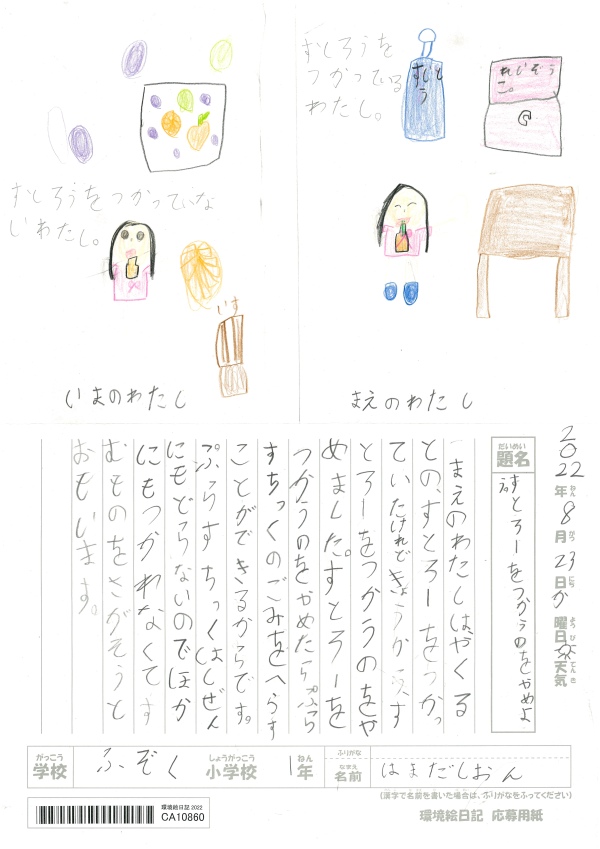 すとろうを
つかっている
わたし。
すとろう
れいぞうこ。
すとろうをつかっていな
いわたし。
いす
いまのわたし
まえのわたし
2022年ねん8月がつ23日にちか曜日ようび天気てんき
だいめい
題名
すとろーをつかうのをやめよ
まえのわたしは、やくる
との、すとろーをつかっ
ていたけれどきょうから、す
とろーをつかうのをや
めました。すとろーを
つかうのをやめたら、ぷら
すちっくのごみをへらす
ことができるからです。
ぷらすちっくはしぜん
にもどらないのでほか
にもつかわなくてす
むものをさがそうと
おもいます。
がっこう
学校
ふぞく
しょうがっこう
小学校
1年ねん
ふりがな
なまえ
名前
はまだしおん
(漢字で名前を書いた場合は、ふりがなをふってください)
環境絵日記 2022
CA10860
環境絵日記 応募用紙